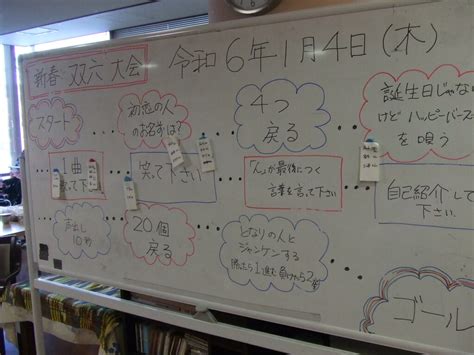 新春 双六 大会
令和6年1月4日(木)
スタート
初恋の人
のお名前は?
4つ
戻る
誕生日じゃない
けど ハッピーバース
を唄う
1曲
笑って下さい
「ん」が最後につく
言葉を言って下さい
自己紹介して
下さい
声出し
10秒
20個
戻る
となりの人と
ジャンケンする
ゴール